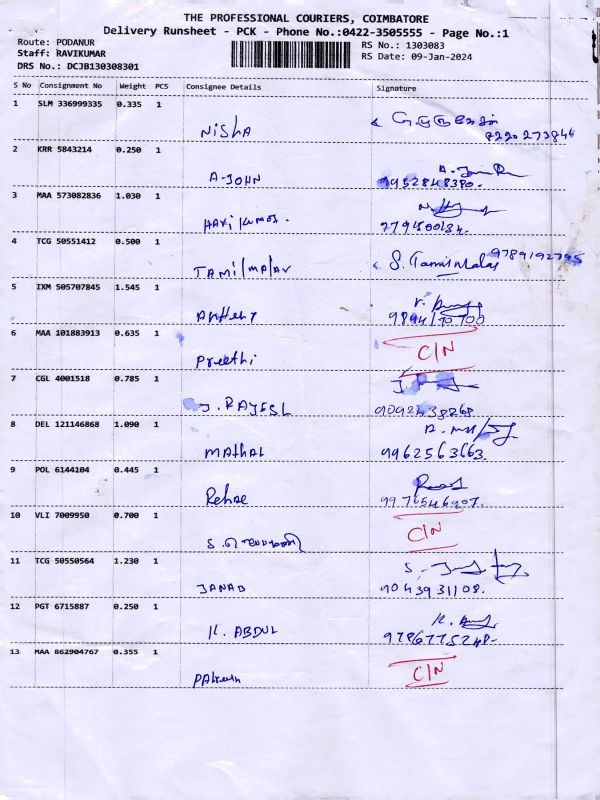 THE PROFESSIONAL COURIERS, COIMBATORE
Delivery Runsheet - PCK - Phone No.:0422-3505555 - Page No.:1
Route: PODANUR
Staff: RAVIKUMAR
DRS No.: DCJB130308301
RS No.: 1303083
RS Date: 09-Jan-2024
S No Consignment No Weight PCS Consignee Details Signature
1 SLM 336999335 0.335 1
NISHA 8220273844
2 KRR 5843214 0.250 1
A-JOHN 9952848380.
3 MAA 573082836 1.030 1
HARI KUMAR.
4 TCG 50551412 0.500 1
TAMILMALAR S. Tamilmalar 9789192795
5 IXM 505707845 1.545 1
Anthony
6 MAA 101883913 0.635 1
Preethi C/N
7 CGL 4001518 0.785 1
J. RAJESH 9092438268
8 DEL 121146868 1.090 1
9962563663.
9 POL 6144104 0.445 1
9976546907.
10 VLI 7009950 0.700 1
C/N
11 TCG 50550564 1.230 1
JANAB 9043931108.
12 PGT 6715887 0.250 1
K. ABDUL
13 MAA 862904767 0.355 1
C/N